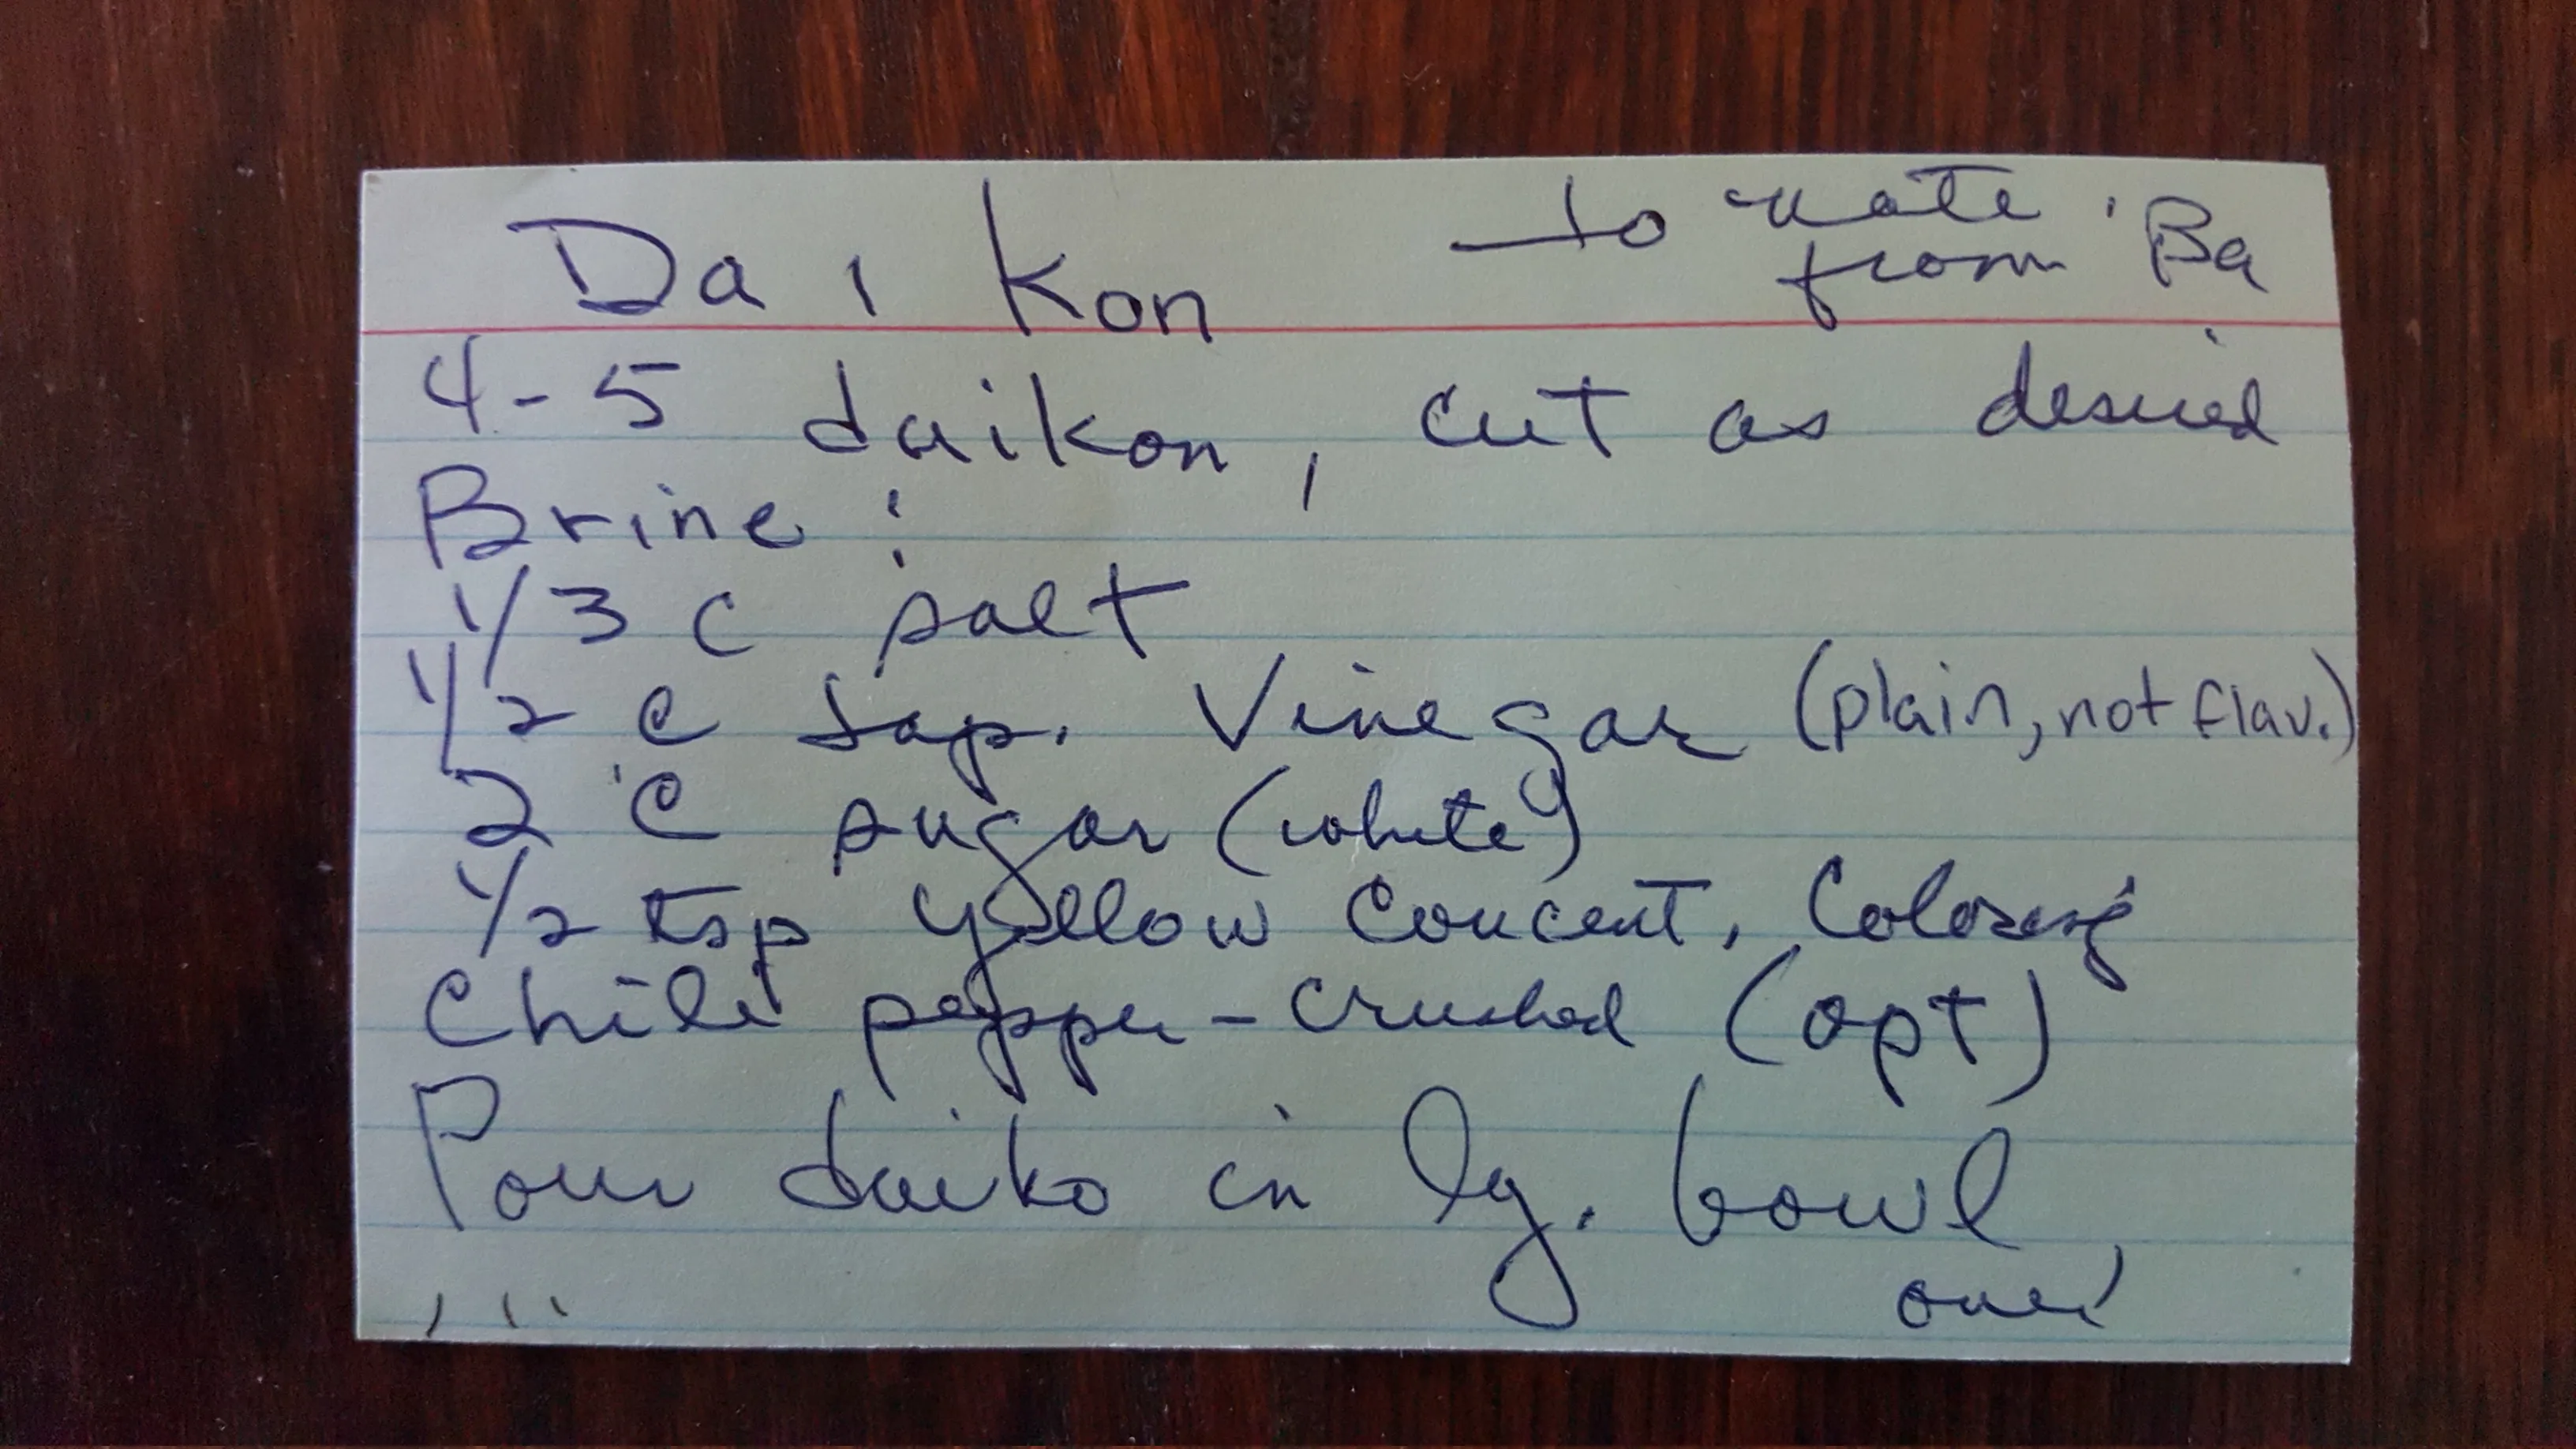 Daikon — to nate
from Ba
4-5 daikon, cut as desired
Brine:
1/3 c salt
1/2 c Jap. Vinegar (plain, not flav.)
2 c sugar (white)
1/2 tsp yellow concent. Coloring
Chili pepper - crushed (opt)
Pour daiko in lg. bowl,
over